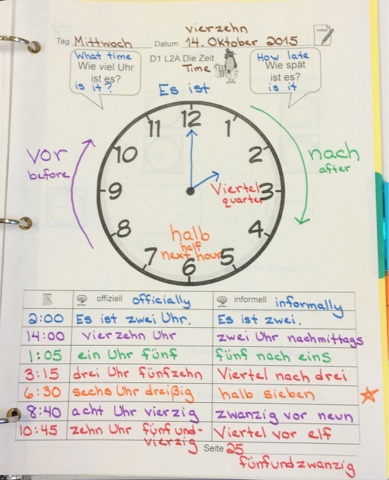 vierzehn
Tag Mittwoch Datum: 14. Oktober 2015
What time
Wie viel Uhr
ist es?
is it?
D1 L2A Die Zeit
Time
How late
Wie spät
ist es?
is it
Es ist
12
11 1
10 2
9 3
8 4
7 5
6
vor
before
nach
after
Viertel
quarter
halb
half
next hour
offiziell officially informell informally
2:00 Es ist zwei Uhr. Es ist zwei.
14:00 vierzehn Uhr zwei Uhr nachmittags
1:05 ein Uhr fünf fünf nach eins
3:15 drei Uhr fünfzehn Viertel nach drei
6:30 sechs Uhr dreißig halb sieben
8:40 acht Uhr vierzig zwanzig vor neun
10:45 zehn Uhr fünf und- Viertel vor elf
vierzig
Seite 25
fünfundzwanzig